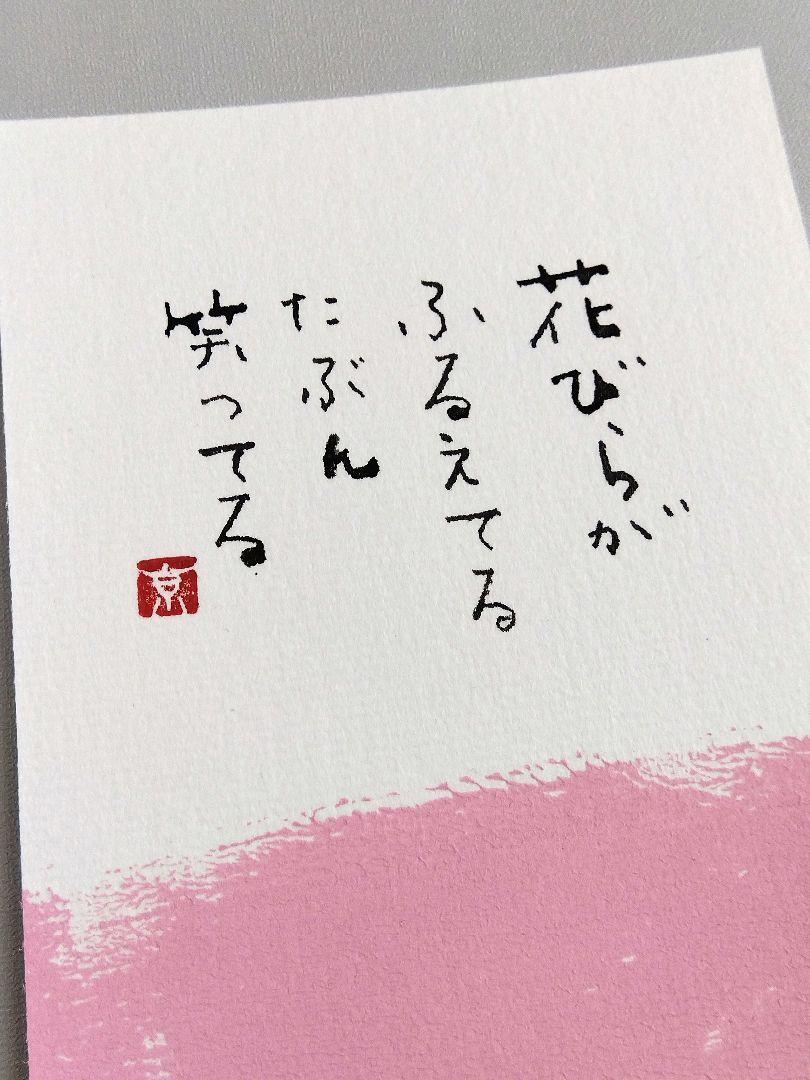 花びらが
ふるえてる
たぶん
笑ってる
京